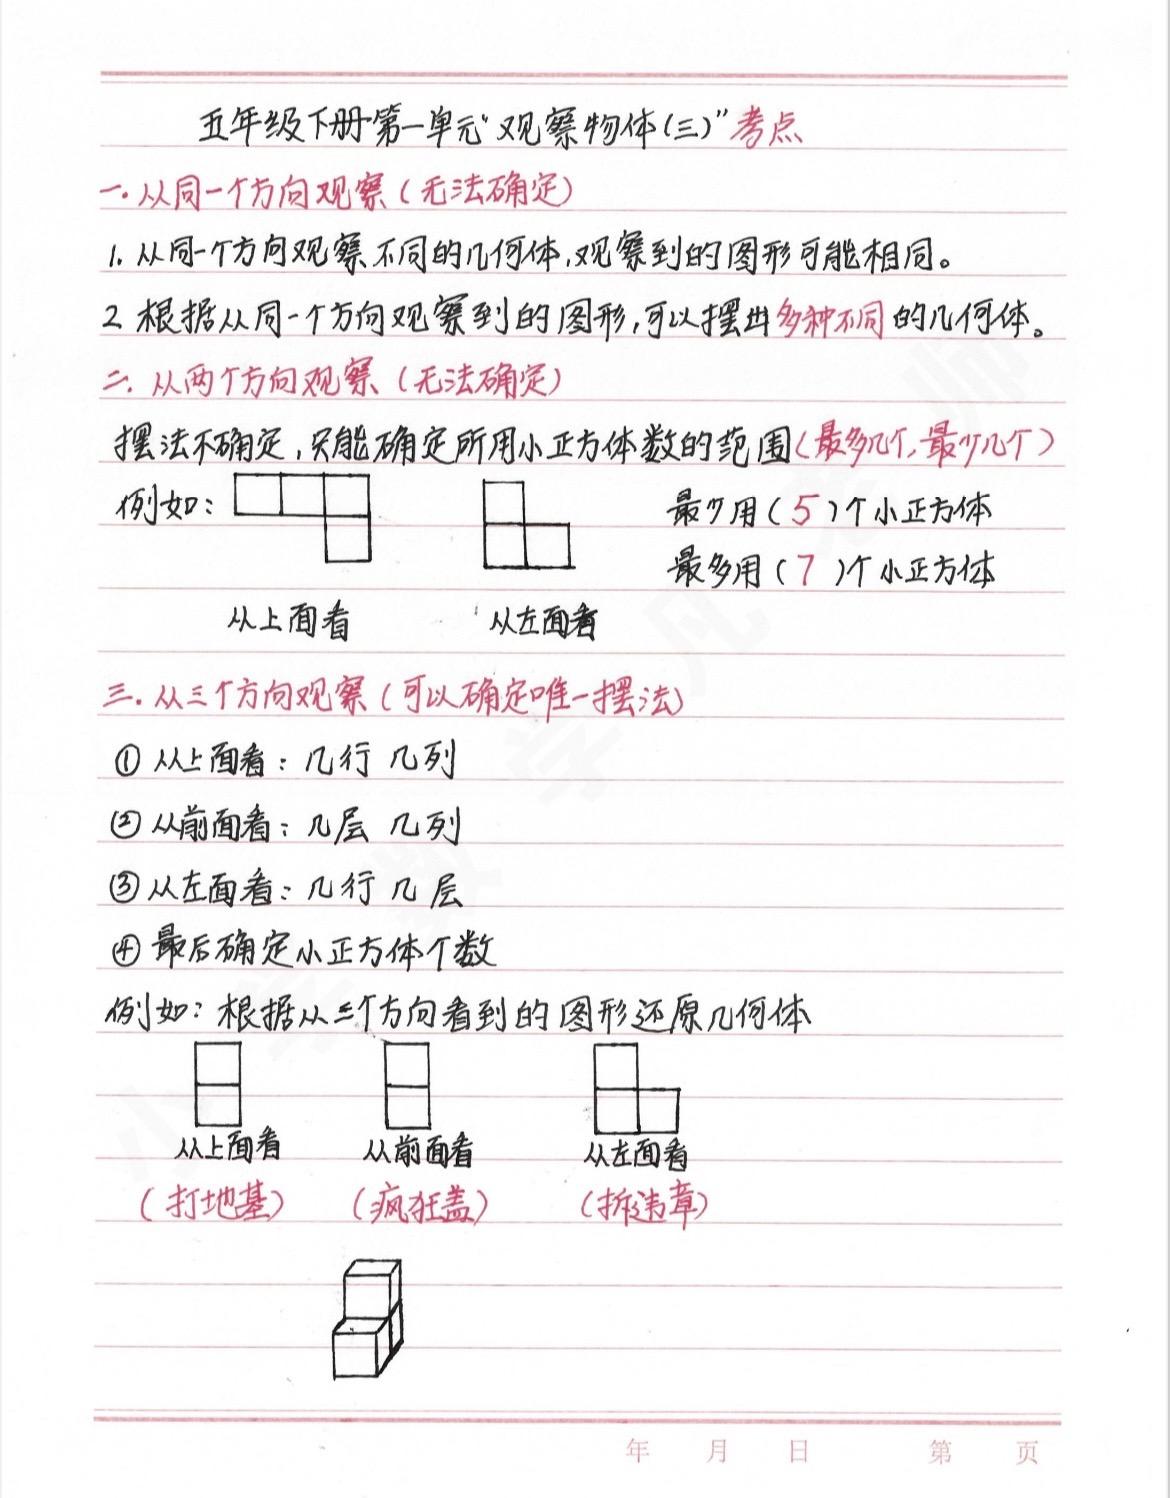 五年级下册第一单元“观察物体(三)”考点
一.从同一个方向观察(无法确定)
1.从同一个方向观察不同的几何体,观察到的图形可能相同。
2.根据从同一个方向观察到的图形,可以摆出多种不同的几何体。
二.从两个方向观察(无法确定)
摆法不确定,只能确定所用小正方体数的范围(最多几个,最少几个)
例如:
最少用(5)个小正方体
最多用(7)个小正方体
从上面看 从左面看
三.从三个方向观察(可以确定唯一摆法)
①从上面看:几行 几列
②从前面看:几层 几列
③从左面看:几行 几层
④最后确定小正方体个数
例如:根据从三个方向看到的图形还原几何体
从上面看 从前面看 从左面看
(打地基) (疯狂盖) (拆违章)
年 月 日 第 页
小学数学凡老师